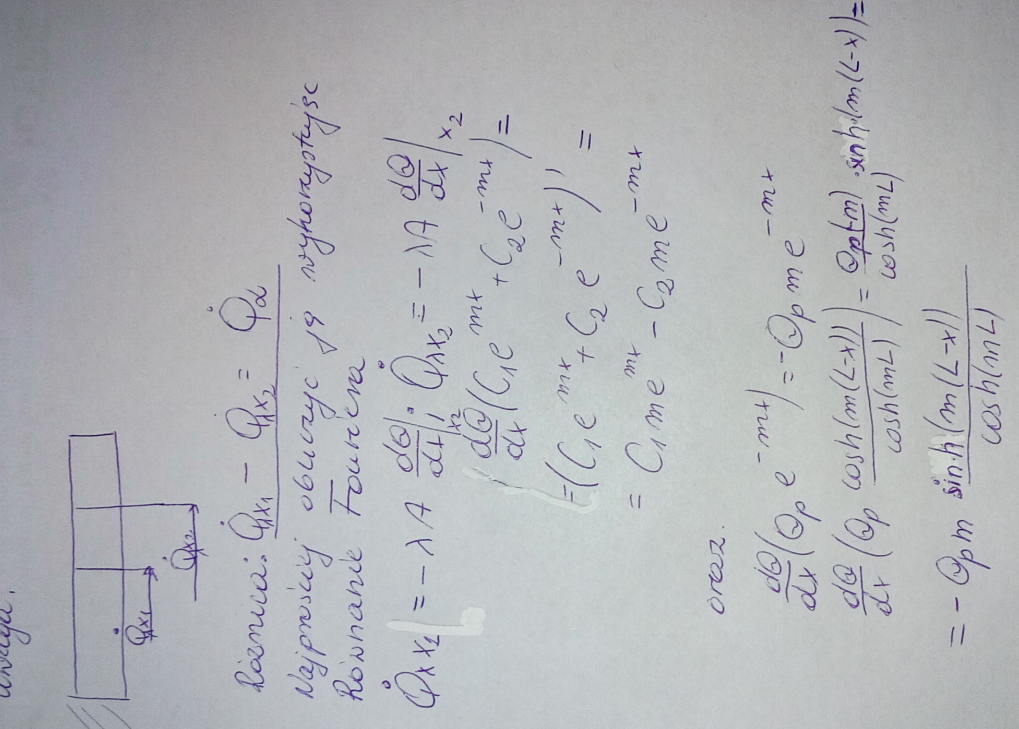 uwaga.
Q̇x₁
Q̇x₂
Różnica: Q̇λx₁ − Q̇λx₂ = Q̇α
Najprościej obliczyć ją wykorzystując
Równanie Fouriera
Q̇λx₁ = −λA dΘ/dx|x₁ ; Q̇λx₂ = −λA dΘ/dx|x₂
dΘ/dx (C₁e^mx + C₂e^−mx) =
= (C₁e^mx + C₂e^−mx)' =
= C₁me^mx − C₂me^−mx
oraz.
dΘ/dx (Θp e^−mx) = −Θp m e^−mx
dΘ/dx (Θp cosh(m(L−x))/cosh(mL)) = Θp(−m)/cosh(mL) · sinh(m(L−x)) =
= −Θp m sinh(m(L−x))/cosh(mL)